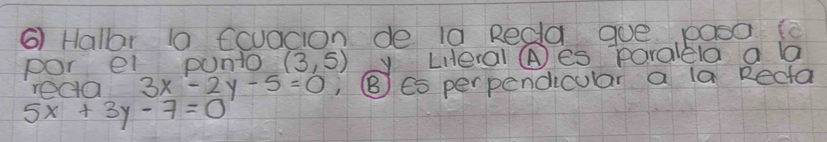 ⑥ Hallar la Ecuación de la Recta que pasa
por el punto (3,5) y Literal Ⓐ es paralela a la
recta 3x - 2y - 5 = 0; Ⓑ es perpendicular a la Recta
5x + 3y - 7 = 0